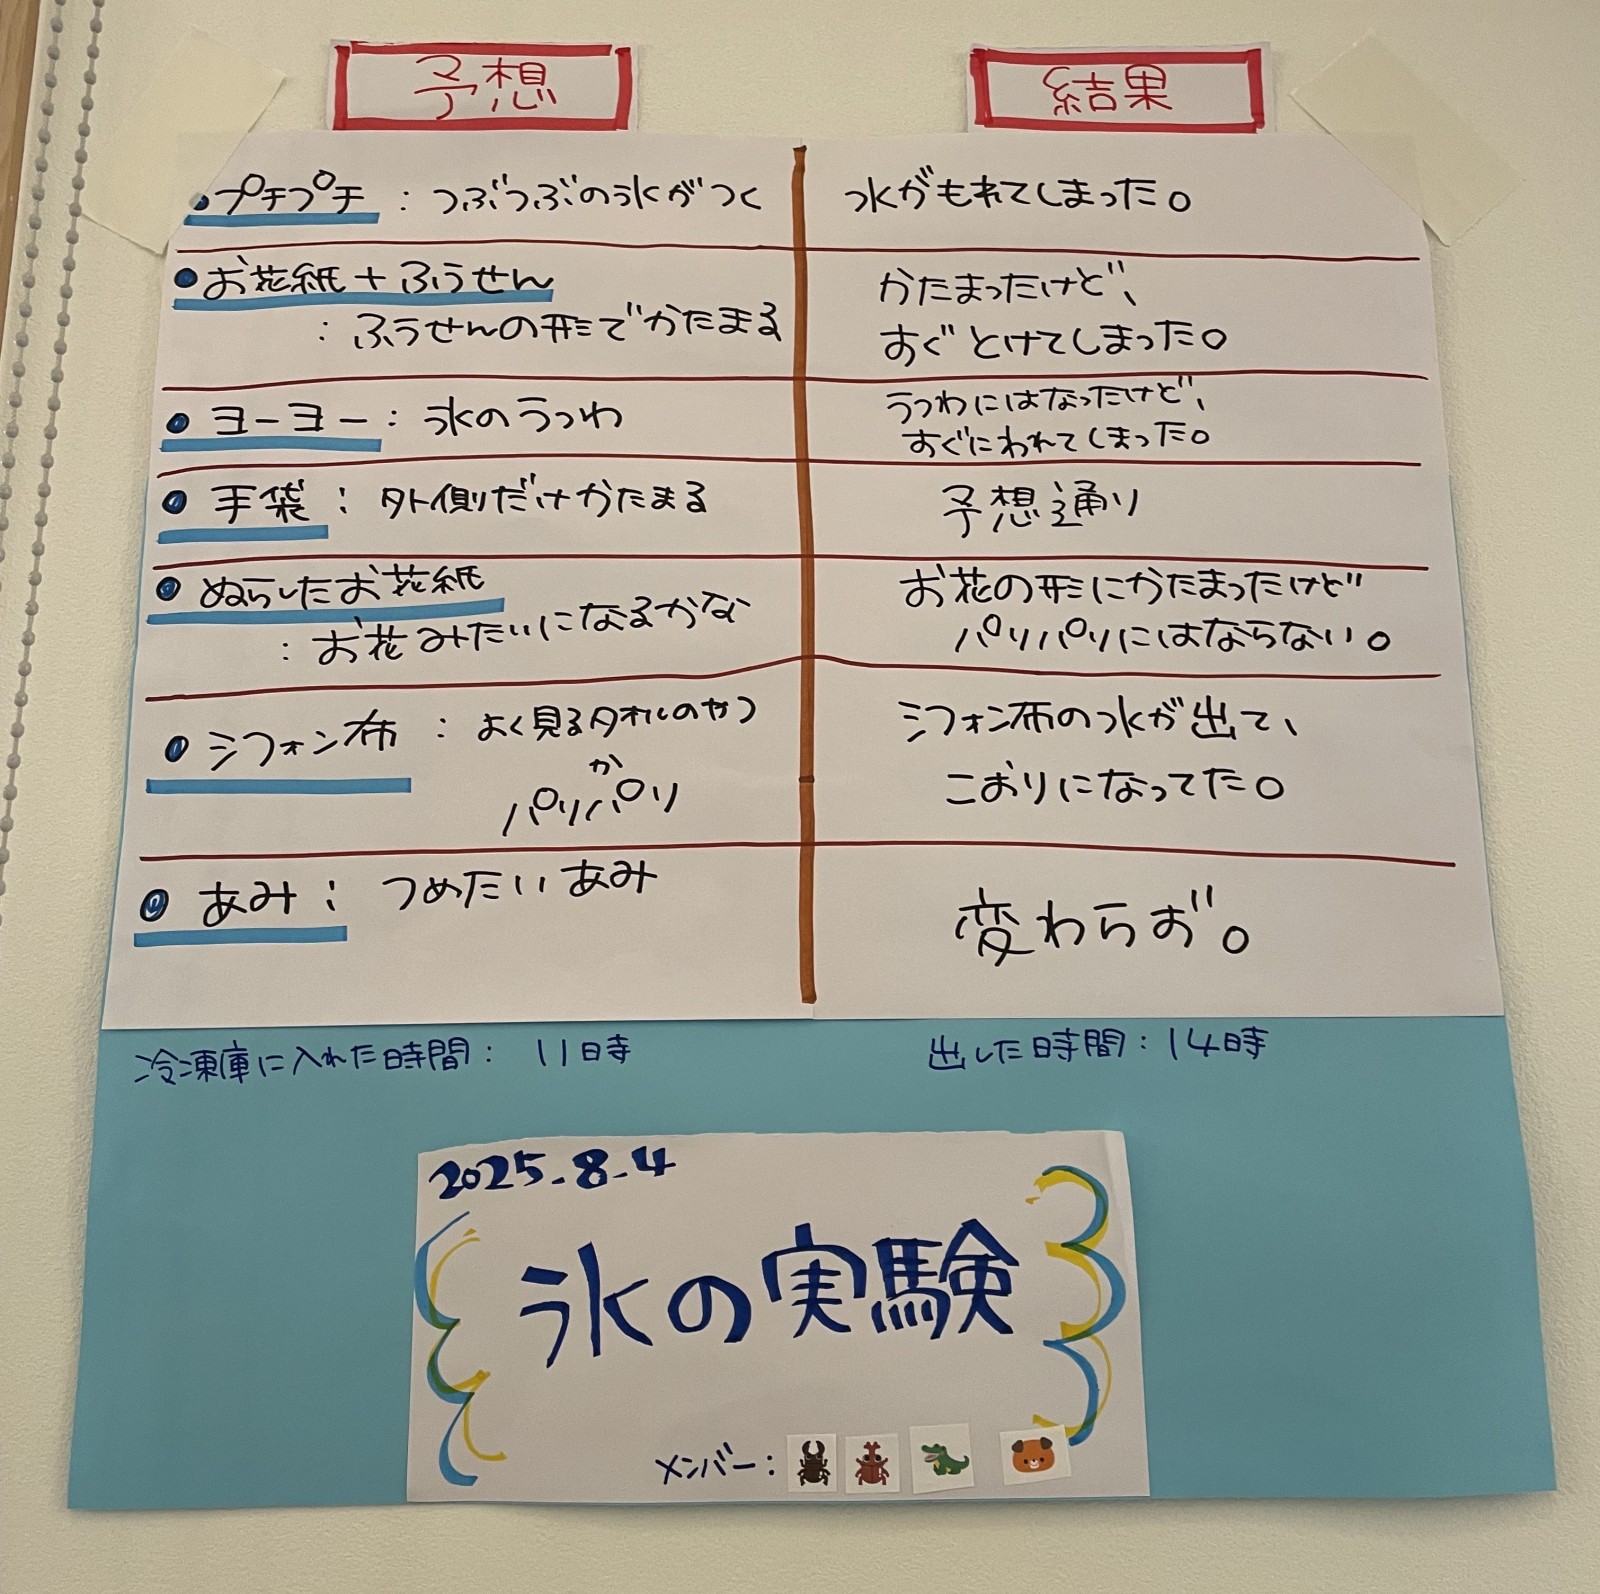 予想
結果
・プチプチ：つぶつぶの氷がつく
水がもれてしまった。
●お花紙+ふうせん
：ふうせんの形でかたまる
かたまったけど、
すぐとけてしまった。
●ヨーヨー：氷のうつわ
うつわにはなったけど、
すぐにわれてしまった。
●手袋：外側だけかたまる
予想通り
●ぬらしたお花紙
：お花みたいになるかな
お花の形にかたまったけど
パリパリにはならない。
●シフォン布：よく見るタオルのやつ
か
パリパリ
シフォン布の水が出て、
こおりになってた。
●あみ：つめたいあみ
変わらず。
冷凍庫に入れた時間：11時
出した時間：14時
2025.8.4
氷の実験
メンバー：